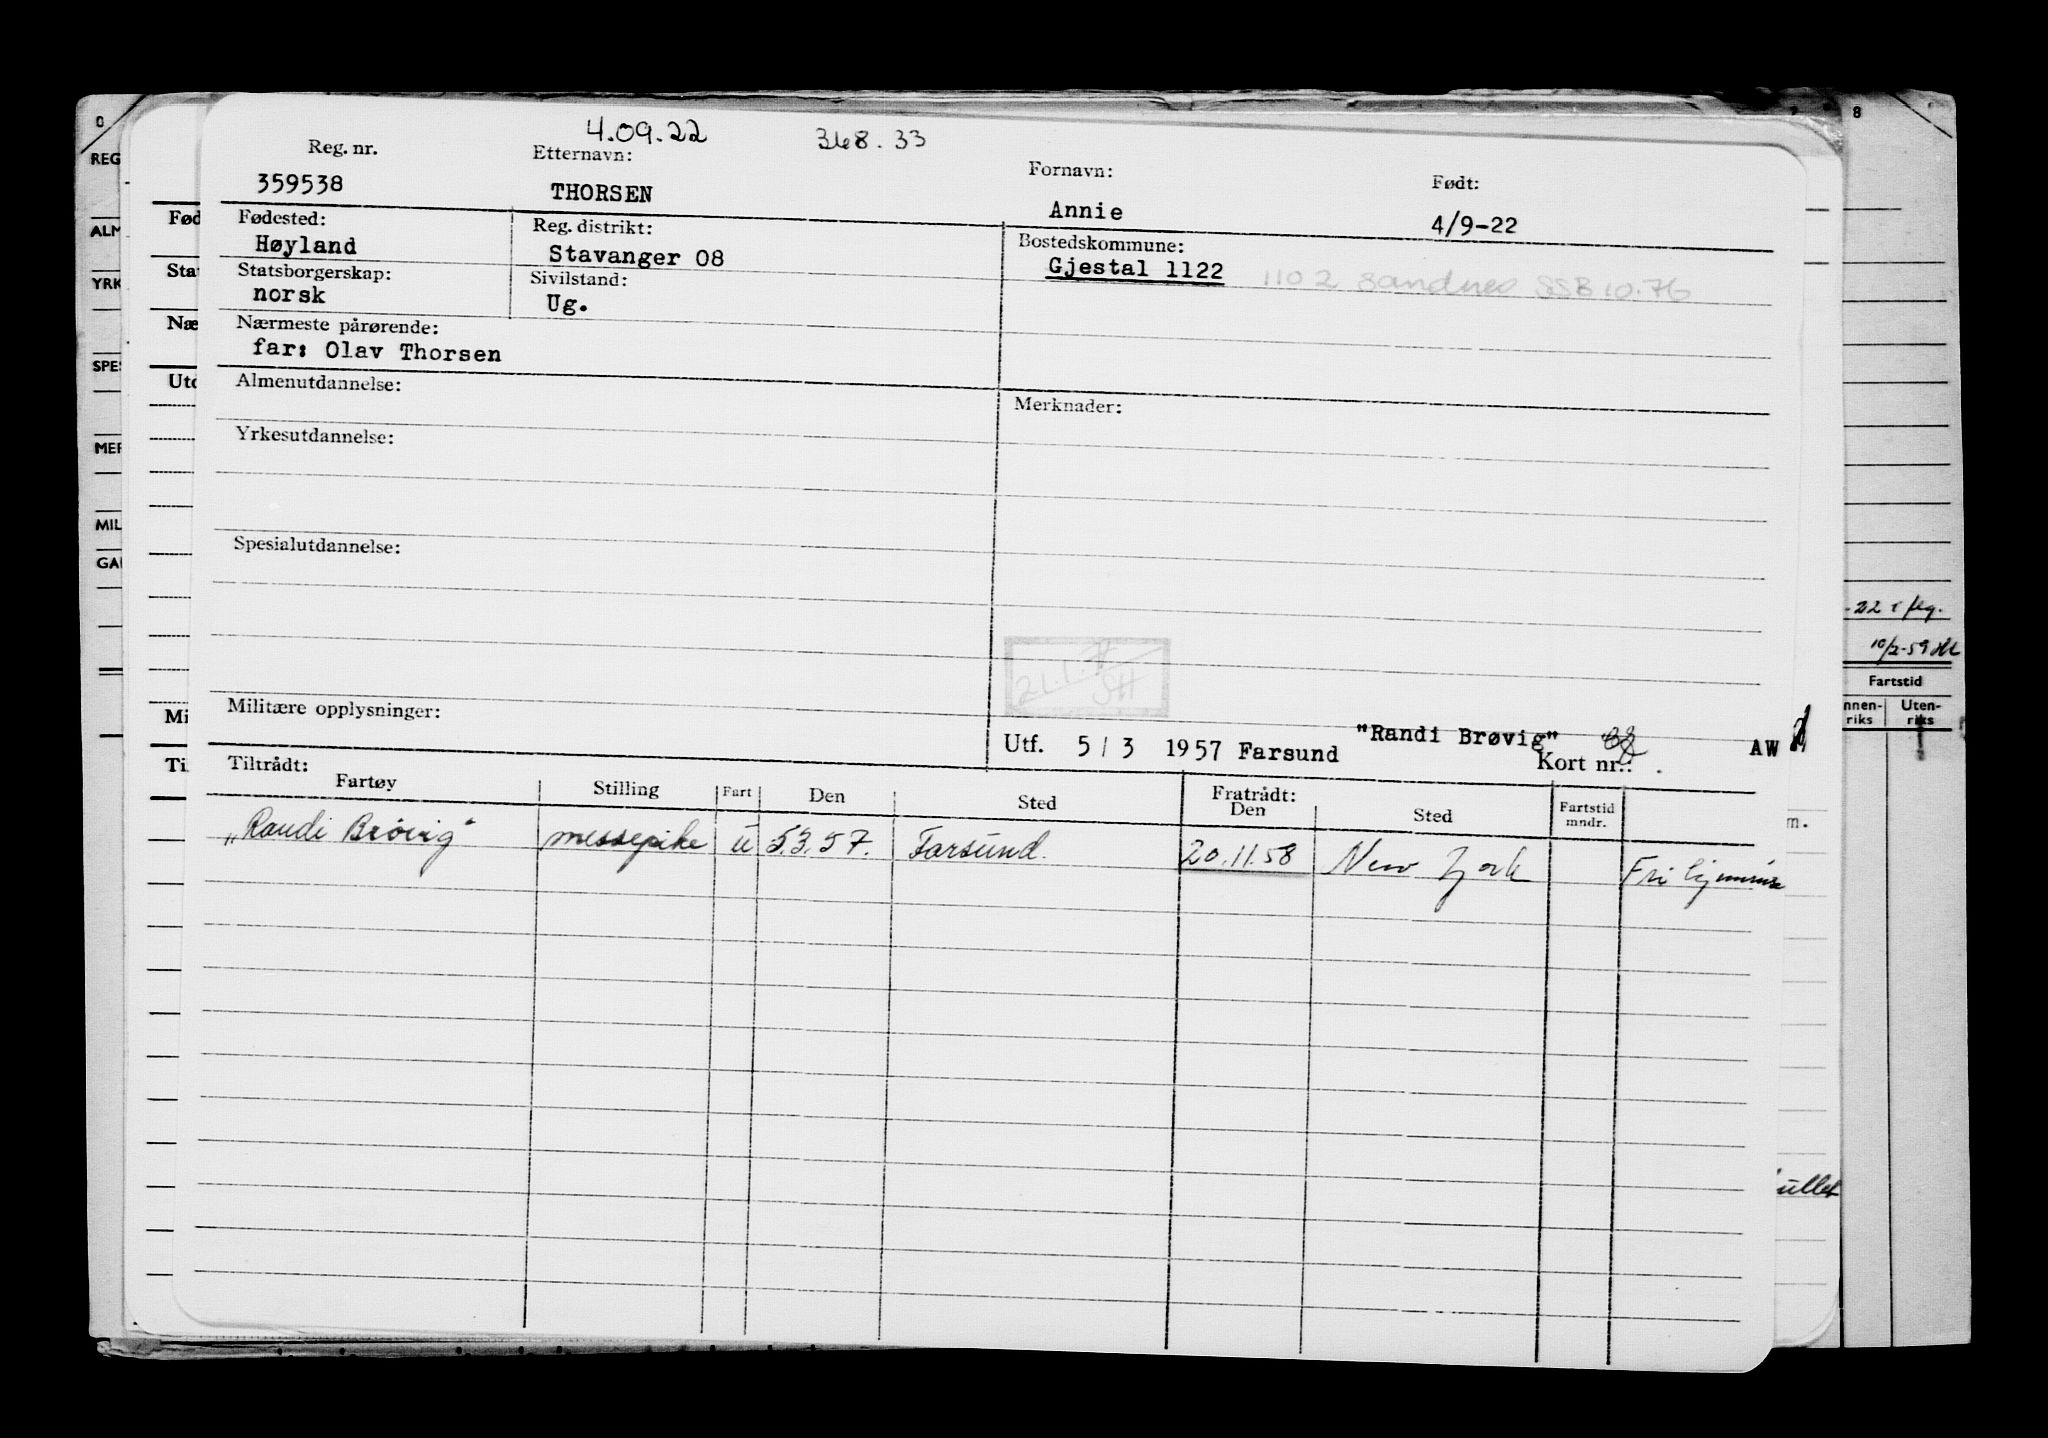 4.09.22 368.33
Reg. nr. Etternavn: Fornavn: Født:
359538 THORSEN Annie 4/9-22
Fødested: Reg. distrikt: Bostedskommune:
Høyland Stavanger 08 Gjestal 1122 1102 Sandnes SSB 10.76
Statsborgerskap: Sivilstand:
norsk Ug.
Nærmeste pårørende:
far: Olav Thorsen
Almenutdannelse: Merknader:
Yrkesutdannelse:
Spesialutdannelse:
Militære opplysninger:
Utf. 5/3 1957 Farsund "Randi Brøvig" AW
Kort nr.:
Tiltrådt: Fratrådt:
Fartøy Stilling Fart Den Sted Den Sted Fartstid mndr.
"Randi Brøvig" messepike u 5.3.57. Farsund. 20.11.58 New York Fri
0
REG
ALM
YRK
SPES
MER
MIL
Fød
Sta
Næ
Utd
Mi
Ti
8
10/2-59
Fartstid
nnen-riks Uten-riks
m.